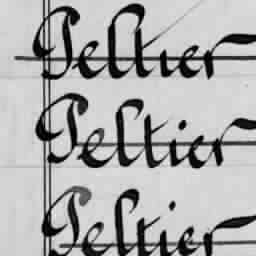 Peltier
Peltier
Peltier